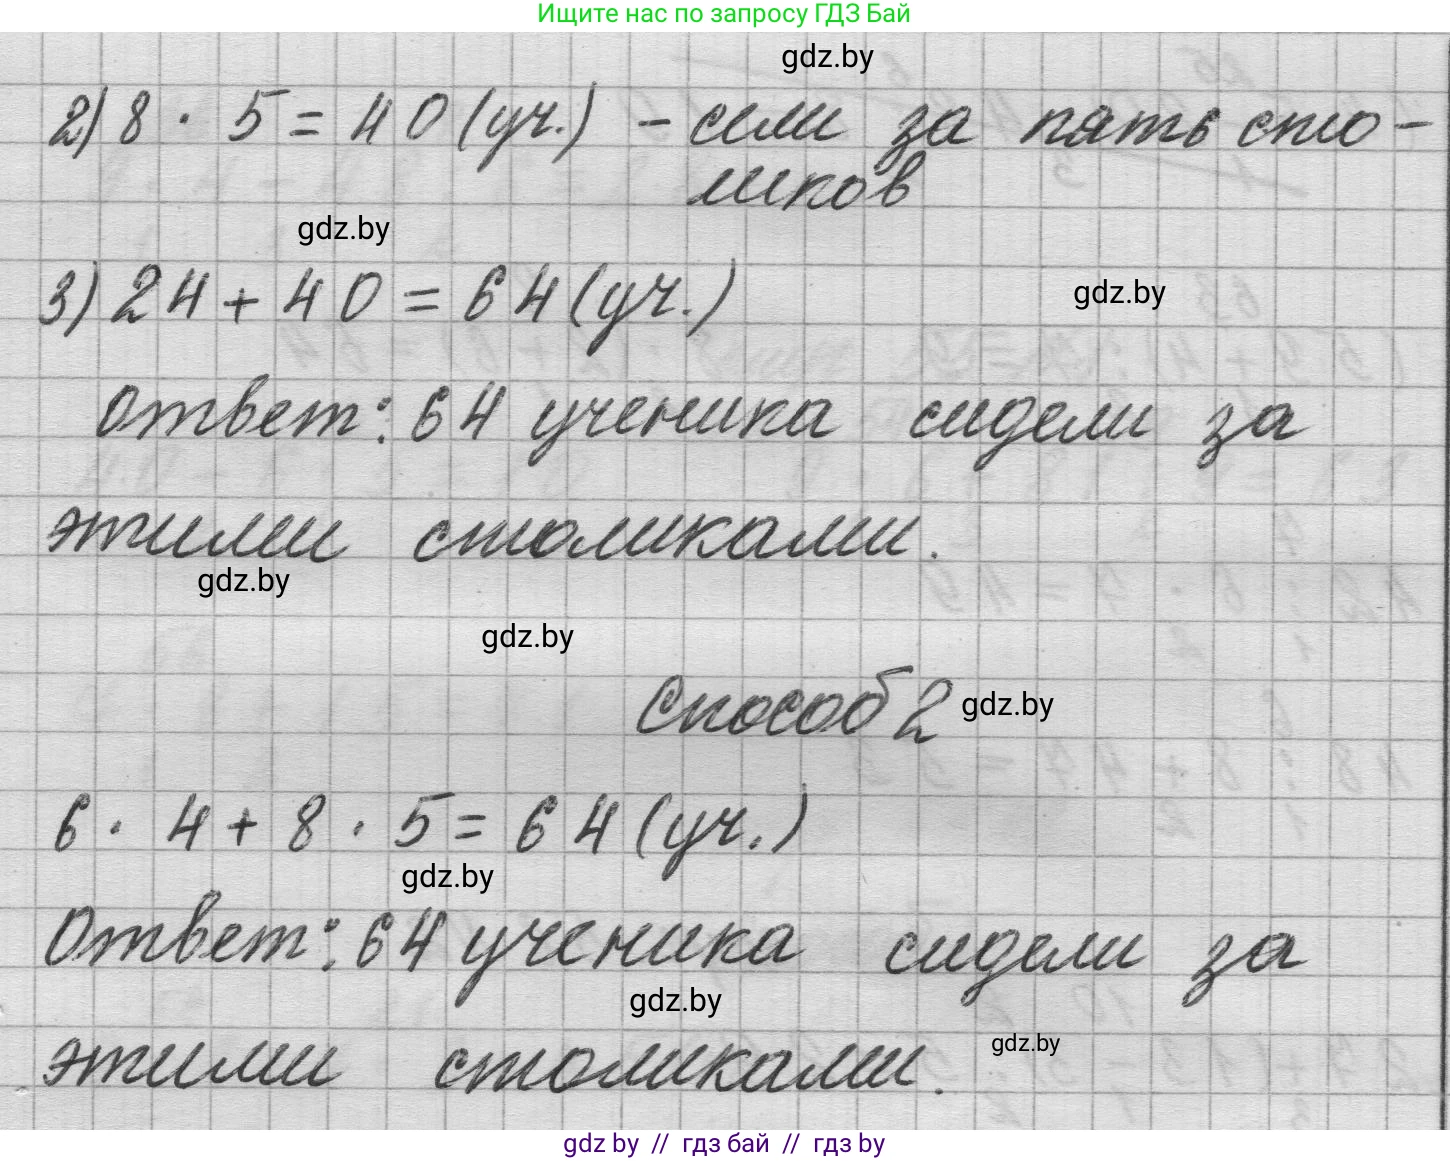 Ищите нас по запросу ГДЗ Бай
gdz.by
2) 8 · 5 = 40 (уч.) – сели за пять сто-
ликов
gdz.by
3) 24 + 40 = 64 (уч.)
gdz.by
Ответ: 64 ученика сидели за
этими столиками.
gdz.by
gdz.by
Способ 2
gdz.by
6 · 4 + 8 · 5 = 64 (уч.)
gdz.by
Ответ: 64 ученика сидели за
gdz.by
этими столиками.
gdz.by
gdz by // гдз бай // гдз by